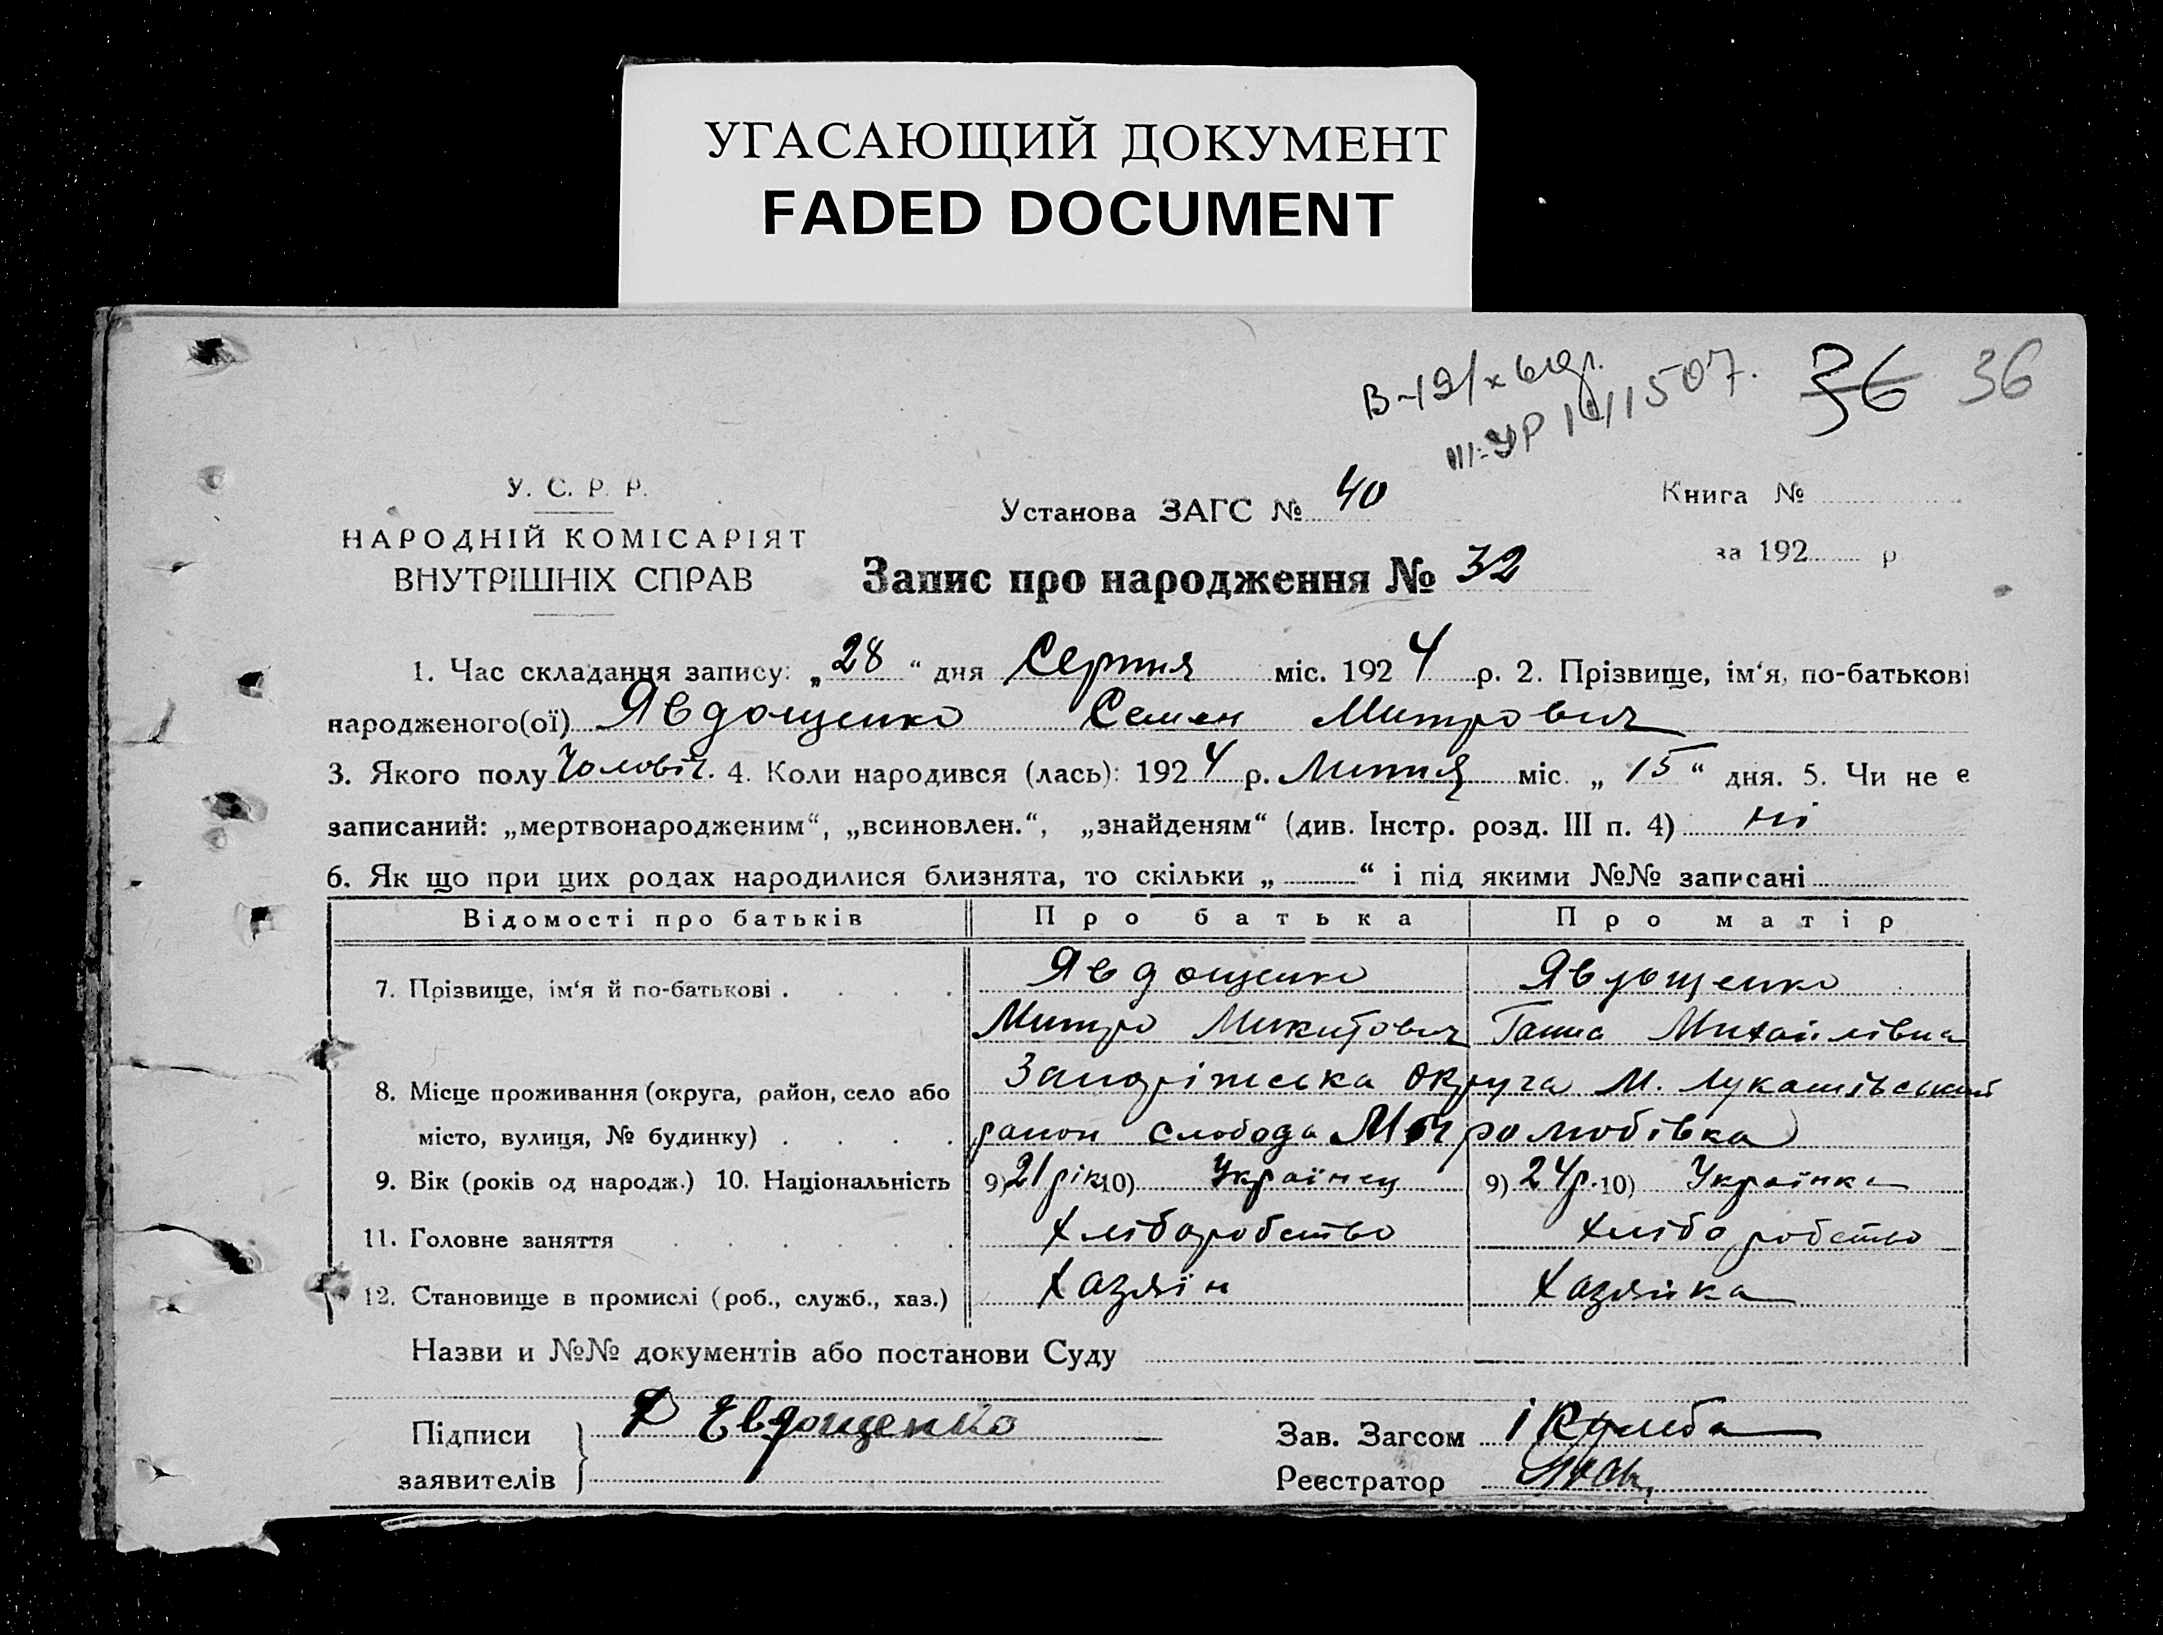 УГАСАЮЩИЙ ДОКУМЕНТ
FADED DOCUMENT
36 36
У. С. Р. Р.
НАРОДНІЙ КОМІСАРІЯТ
ВНУТРІШНІХ СПРАВ
Установа ЗАГС № 40
Книга №
за 192 р
Запис про народження № 32
1. Час складання запису: „ 28 “ дня Серпня міс. 192 4 р. 2. Прізвище, ім‘я, по-батькові
народженого(ої) Явдощенко Семен Митрович
3. Якого полу Чоловіч. 4. Коли народився (лась): 192 4 р. Липня міс. „ 15 “ дня. 5. Чи не е
записаний: „мертвонародженим“, „всиновлен.“, „знайденям“ (див. Інстр. розд. III п. 4) ні
6. Як що при цих родах народилися близнята, то скільки „ “ і під якими №№ записані
Відомості про батьків Про батька Про матір
7. Прізвище, ім‘я й по-батькові . . . . Явдощенко Явдощенко
Митро Микитович Ганна Михайлівна
8. Місце проживання (округа, район, село або Запоріжська округа М. Лукашівський
місто, вулиця, № будинку) . . . . район слобода Миролюбівка
9. Вік (років од народж.) 10. Національність 9) 21 рік 10) Українец 9) 24 р. 10) Українка
11. Головне заняття . . . . . . Хліборобство Хліборобство
12. Становище в промислі (роб., служб., хаз.) Хазяїн Хазяйка
Назви и №№ документів або постанови Суду
Підписи Евдощенко Зав. Загсом
заявителів Реєстратор